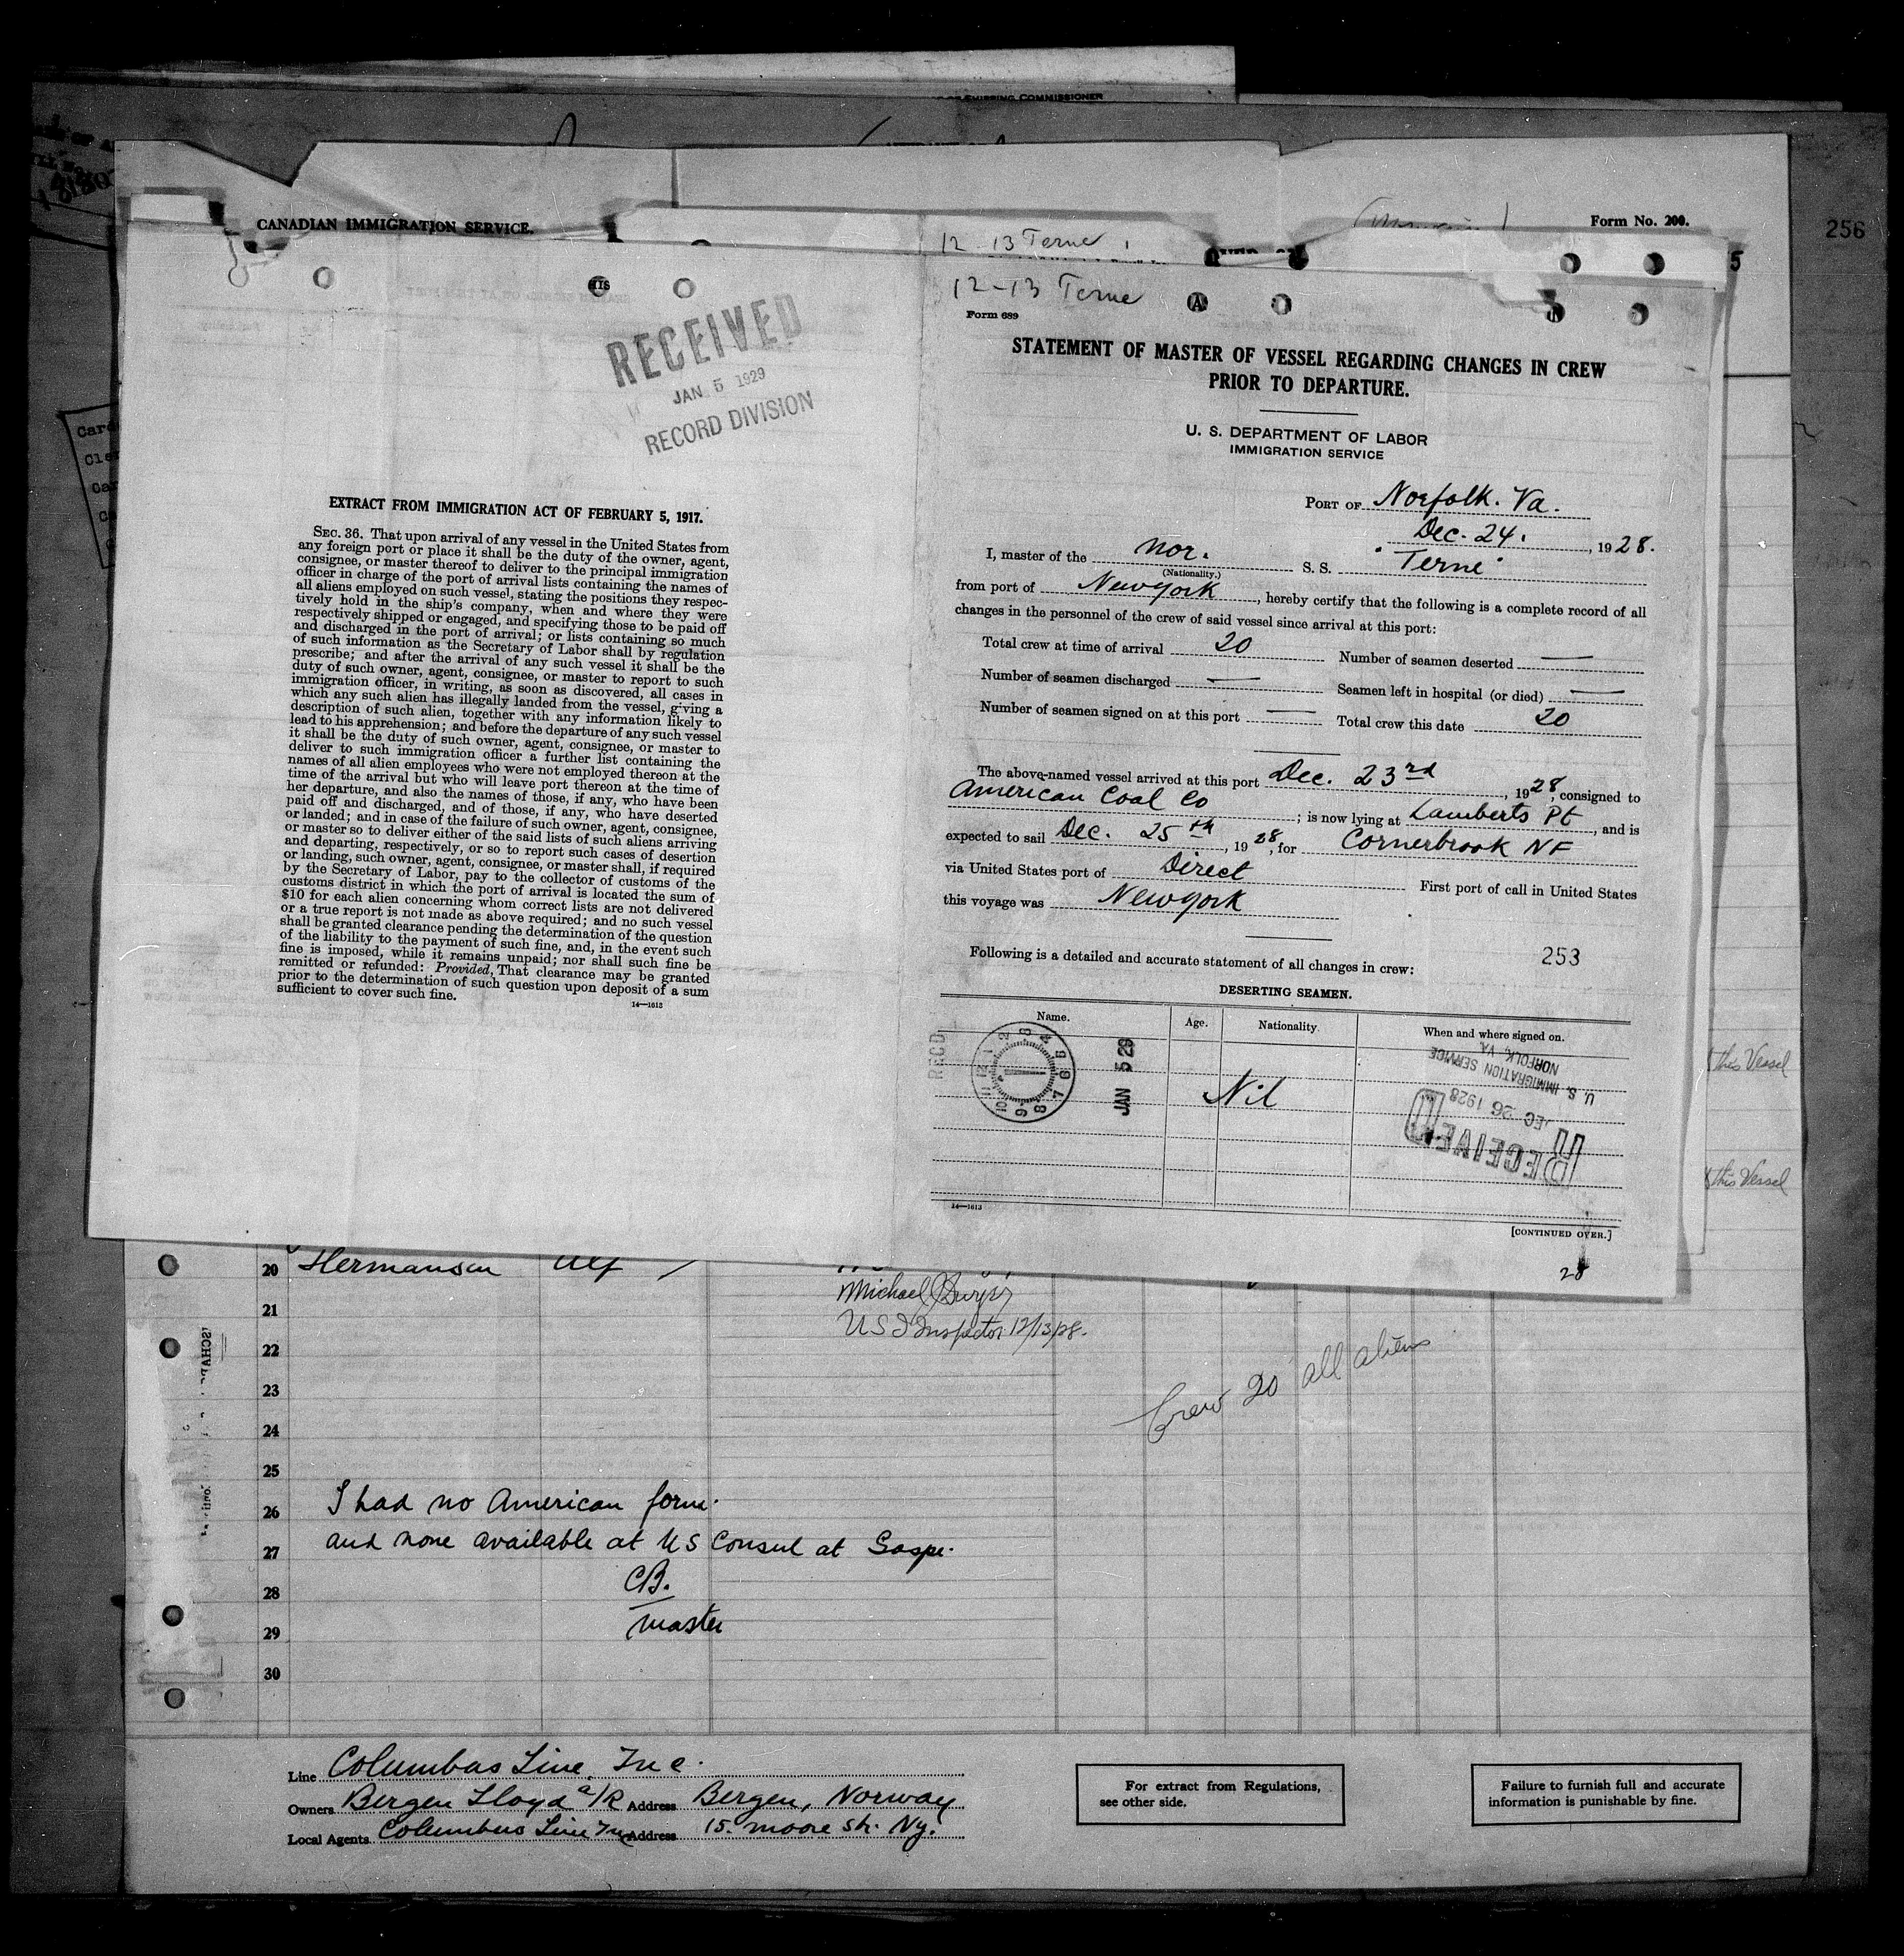 OF SHIPPING COMMISSIONER
CANADIAN IMMIGRATION SERVICE.
Form No. 200.
256
5
12-13 Terne
12-13 Terne
RECEIVED
JAN 5 1929
RECORD DIVISION
EXTRACT FROM IMMIGRATION ACT OF FEBRUARY 5, 1917.
SEC. 36. That upon arrival of any vessel in the United States from
any foreign port or place it shall be the duty of the owner, agent,
consignee, or master thereof to deliver to the principal immigration
officer in charge of the port of arrival lists containing the names of
all aliens employed on such vessel, stating the positions they respec-
tively hold in the ship's company, when and where they were
respectively shipped or engaged, and specifying those to be paid off
and discharged in the port of arrival; or lists containing so much
of such information as the Secretary of Labor shall by regulation
prescribe; and after the arrival of any such vessel it shall be the
duty of such owner, agent, consignee, or master to report to such
immigration officer, in writing, as soon as discovered, all cases in
which any such alien has illegally landed from the vessel, giving a
description of such alien, together with any information likely to
lead to his apprehension; and before the departure of any such vessel
it shall be the duty of such owner, agent, consignee, or master to
deliver to such immigration officer a further list containing the
names of all alien employees who were not employed thereon at the
time of the arrival but who will leave port thereon at the time of
her departure, and also the names of those, if any, who have been
paid off and discharged, and of those, if any, who have deserted
or landed; and in case of the failure of such owner, agent, consignee,
or master so to deliver either of the said lists of such aliens arriving
and departing, respectively, or so to report such cases of desertion
or landing, such owner, agent, consignee, or master shall, if required
by the Secretary of Labor, pay to the collector of customs of the
customs district in which the port of arrival is located the sum of
$10 for each alien concerning whom correct lists are not delivered
or a true report is not made as above required; and no such vessel
shall be granted clearance pending the determination of the question
of the liability to the payment of such fine, and, in the event such
fine is imposed, while it remains unpaid; nor shall such fine be
remitted or refunded: Provided, That clearance may be granted
prior to the determination of such question upon deposit of a sum
sufficient to cover such fine.
14—1613
Form 689
STATEMENT OF MASTER OF VESSEL REGARDING CHANGES IN CREW
PRIOR TO DEPARTURE.
U. S. DEPARTMENT OF LABOR
IMMIGRATION SERVICE
PORT OF Norfolk. Va.
Dec. 24. , 1928.
I, master of the nor. S. S. "Terne"
(Nationality.)
from port of Newyork, hereby certify that the following is a complete record of all
changes in the personnel of the crew of said vessel since arrival at this port:
Total crew at time of arrival 20 Number of seamen deserted —
Number of seamen discharged — Seamen left in hospital (or died) —
Number of seamen signed on at this port — Total crew this date 20
The above-named vessel arrived at this port Dec. 23rd, 1928, consigned to
American Coal Co; is now lying at Lamberts Pt, and is
expected to sail Dec. 25th, 1928, for Cornerbrook NF
via United States port of Direct First port of call in United States
this voyage was Newyork
Following is a detailed and accurate statement of all changes in crew: 253
DESERTING SEAMEN.
Name. Age. Nationality. When and where signed on.
RECD
JAN 5 29
Nil
U. S. IMMIGRATION SERVICE
NORFOLK, VA.
DEC 26 1928
RECEIVED
14—1613
[CONTINUED OVER.]
28
this Vessel
this Vessel
20 Hermansen Alf
21
22
23
24
25
26
27
28
29
30
Michael
US I Inspector 12/13/28.
Crew 20 all aliens
I had no American form.
and none available at US Consul at Gaspe.
CB.
master
Line Columbus Line, Inc.
Owners Bergen Lloyd a/R Address Bergen, Norway
Local Agents Columbus Line Inc Address 15. Moore str. Ny.
For extract from Regulations,
see other side.
Failure to furnish full and accurate
information is punishable by fine.